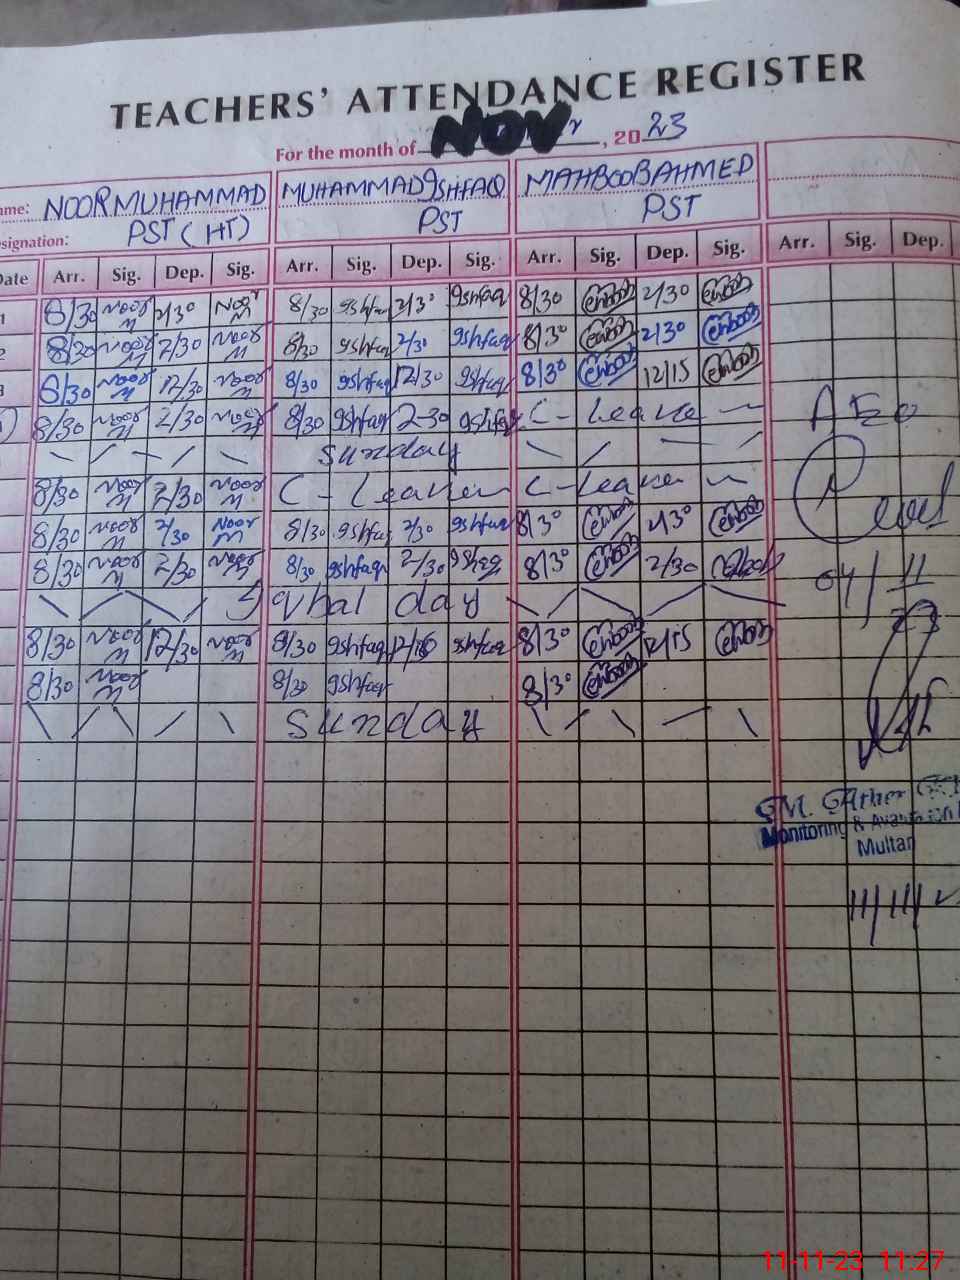 TEACHERS' ATTENDANCE REGISTER
For the month of NOV, 2023
ame: NOOR MUHAMMAD MUHAMMAD IShFAQ MAHBOOB AHMED
esignation: PST (HT) PST PST
Date Arr. Sig. Dep. Sig. Arr. Sig. Dep. Sig. Arr. Sig. Dep. Sig. Arr. Sig. Dep.
1 8/30 Noor M 2/30 Noor M 8/30 Ishfaq 2/30 Ishfaq 8/30 2/30
2 8/30 Noor M 2/30 Noor M 8/30 Ishfaq 2/30 Ishfaq 8/30 2/30
3 8/30 Noor M 12/30 Noor M 8/30 Ishfaq 12/30 Ishfaq 8/30 12/15
8/30 Noor M 2/30 Noor M 8/30 Ishfaq 2-30 Ishfaq C-Leave AEO
Sunday
8/30 Noor M 2/30 Noor M C-Leave C-Leave
8/30 Noor M 2/30 Noor M 8/30 Ishfaq 2/30 Ishfaq 8/30 2/30
8/30 Noor M 2/30 Noor M 8/30 Ishfaq 2/30 Ishfaq 8/30 2/30 04/11
Iqbal day
8/30 Noor M 12/30 Noor M 8/30 Ishfaq Ishfaq 8/30 12/15
8/30 Noor M 8/30 Ishfaq 8/30
Sunday
Monitoring &
Multan
11/11/
11-11-23 11:27